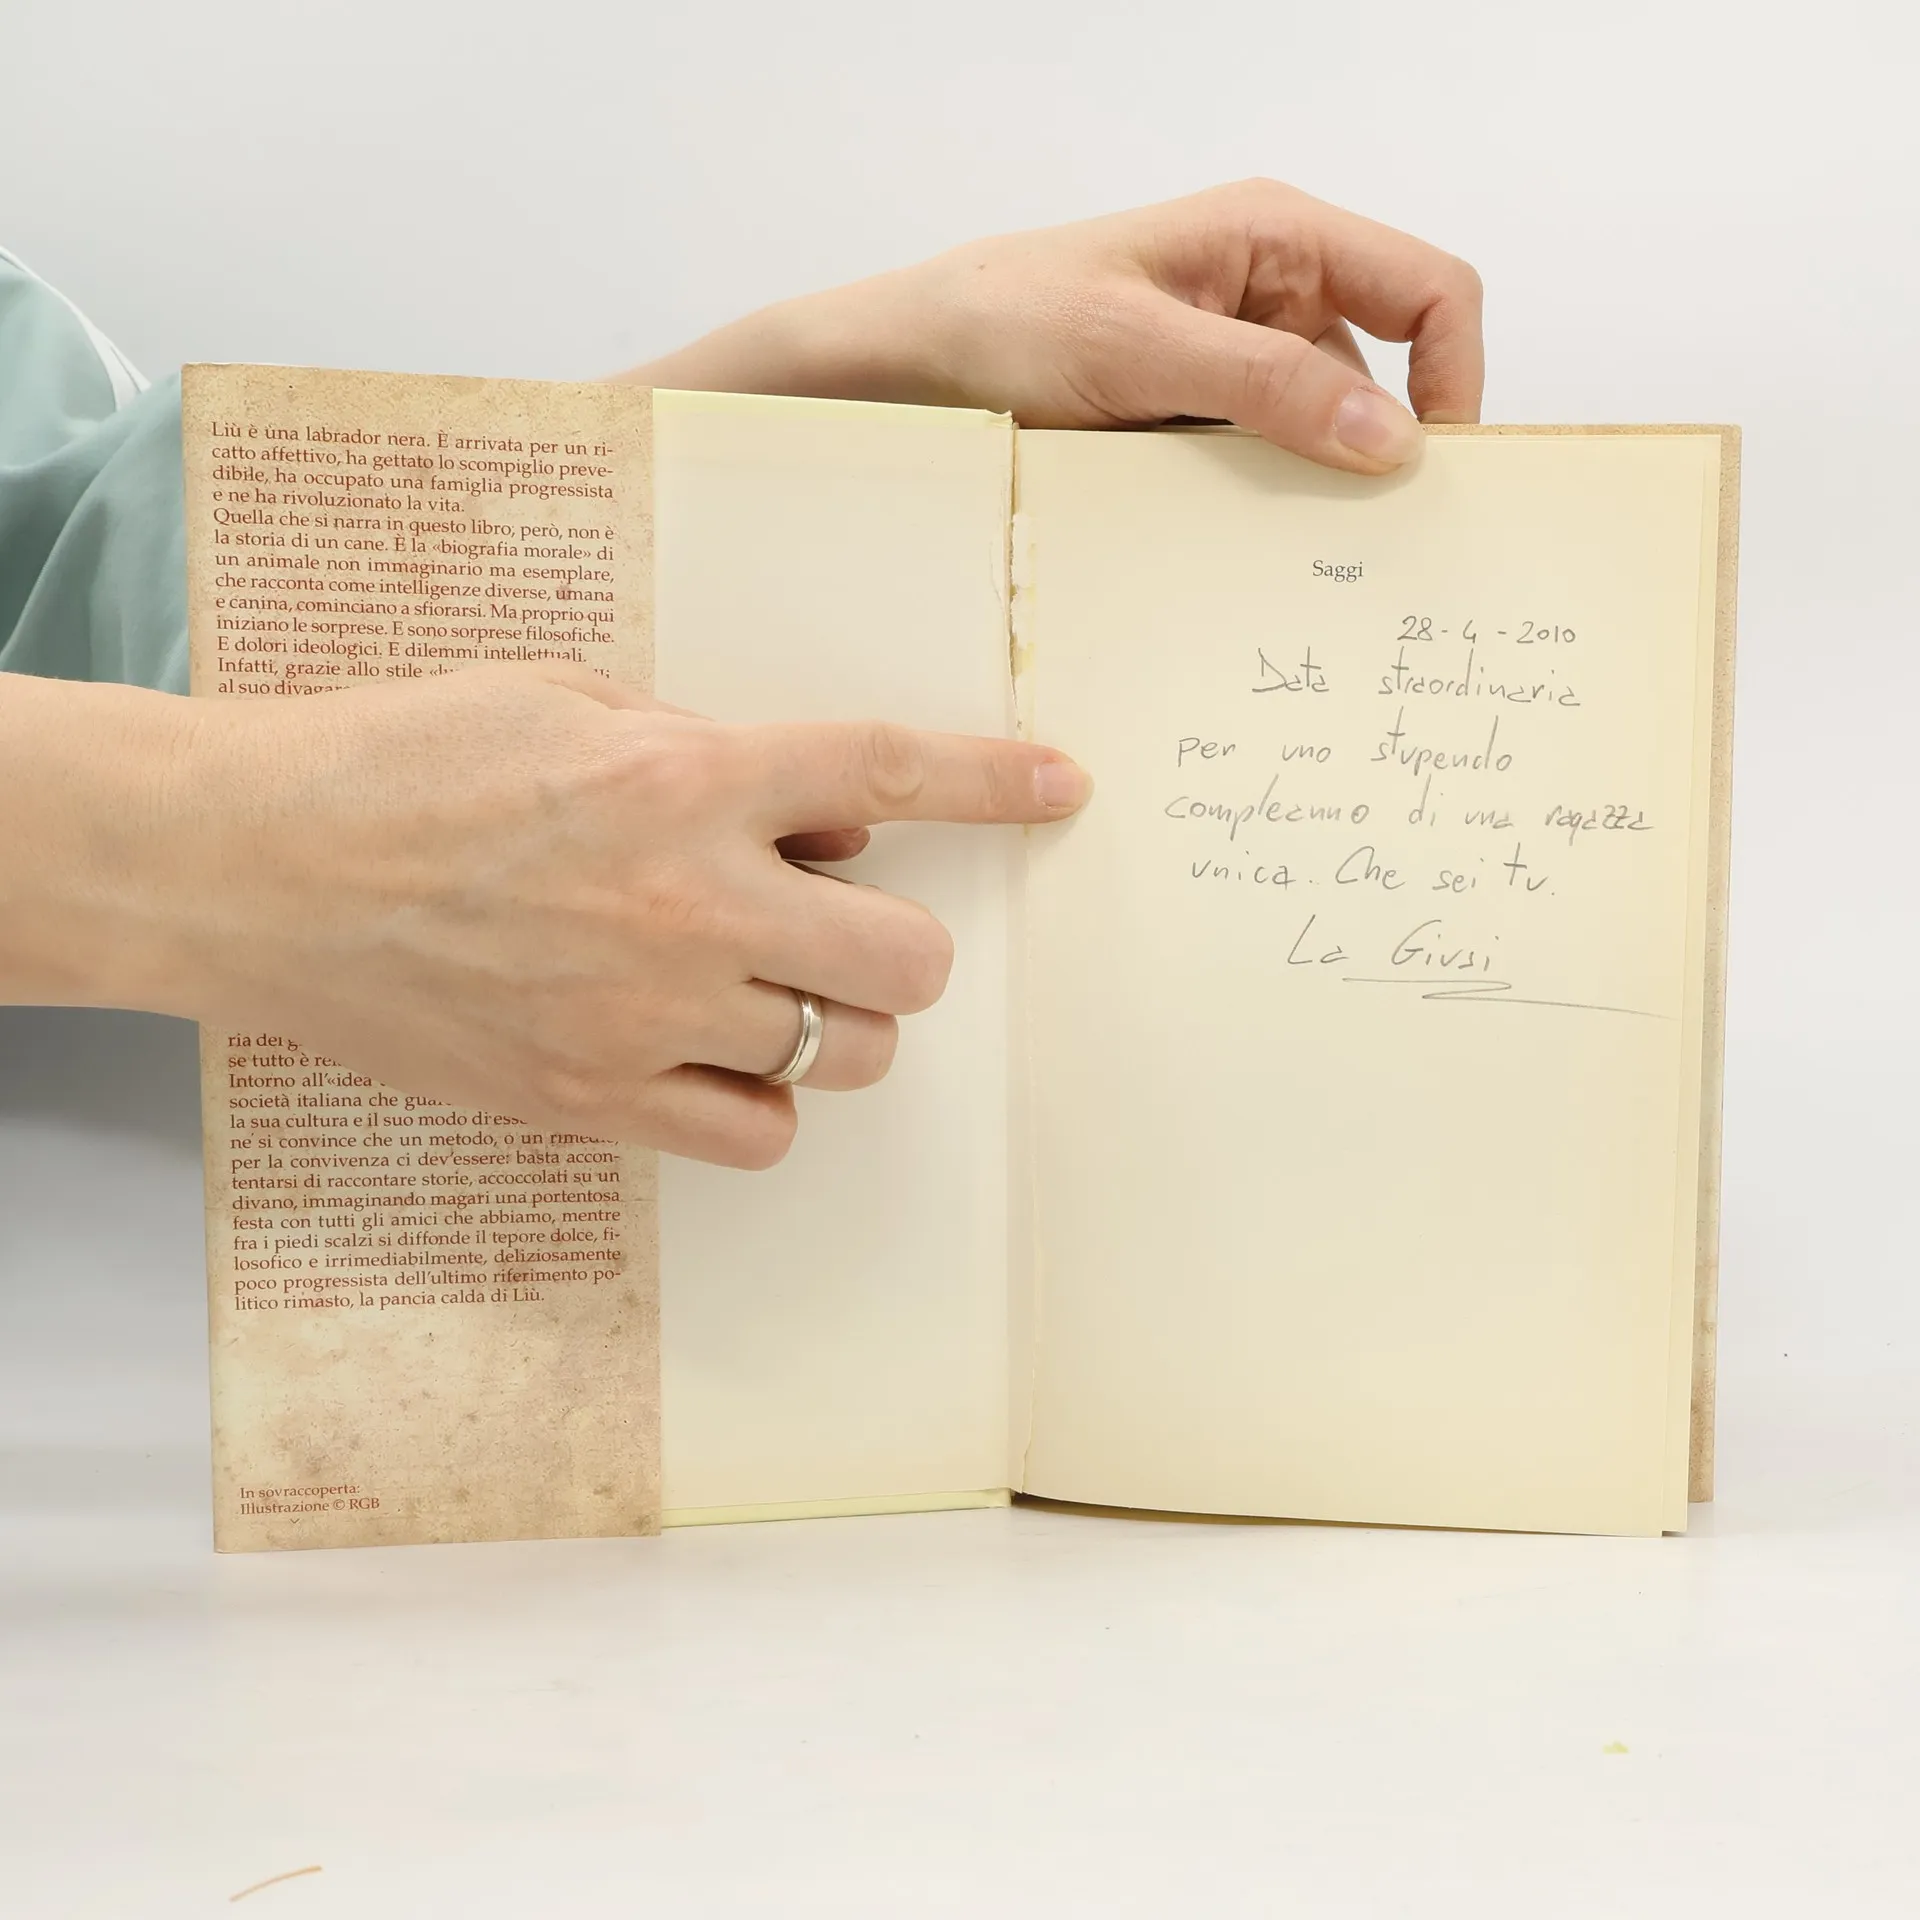 Liù è una labrador nera. È arrivata per un ri-
catto affettivo, ha gettato lo scompiglio preve-
dibile, ha occupato una famiglia progressista
e ne ha rivoluzionato la vita.
Quella che si narra in questo libro, però, non è
la storia di un cane. È la «biografia morale» di
un animale non immaginario ma esemplare,
che racconta come intelligenze diverse, umana
e canina, cominciano a sfiorarsi. Ma proprio qui
iniziano le sorprese. E sono sorprese filosofiche.
E dolori ideologici. E dilemmi intellettuali.
Infatti, grazie allo stile
al suo
ria dei
se tutto è
Intorno all'«idea
società italiana che
la sua cultura e il suo modo di
ne si convince che un metodo, o un
per la convivenza ci dev'essere: basta accon-
tentarsi di raccontare storie, accoccolati su un
divano, immaginando magari una portentosa
festa con tutti gli amici che abbiamo, mentre
fra i piedi scalzi si diffonde il tepore dolce, fi-
losofico e irrimediabilmente, deliziosamente
poco progressista dell'ultimo riferimento po-
litico rimasto, la pancia calda di Liù.
In sovraccoperta:
Illustrazione © RGB
Saggi
28-4-2010
Data straordinaria
per uno stupendo
compleanno di una ragazza
unica. Che sei tu.
La Giusi